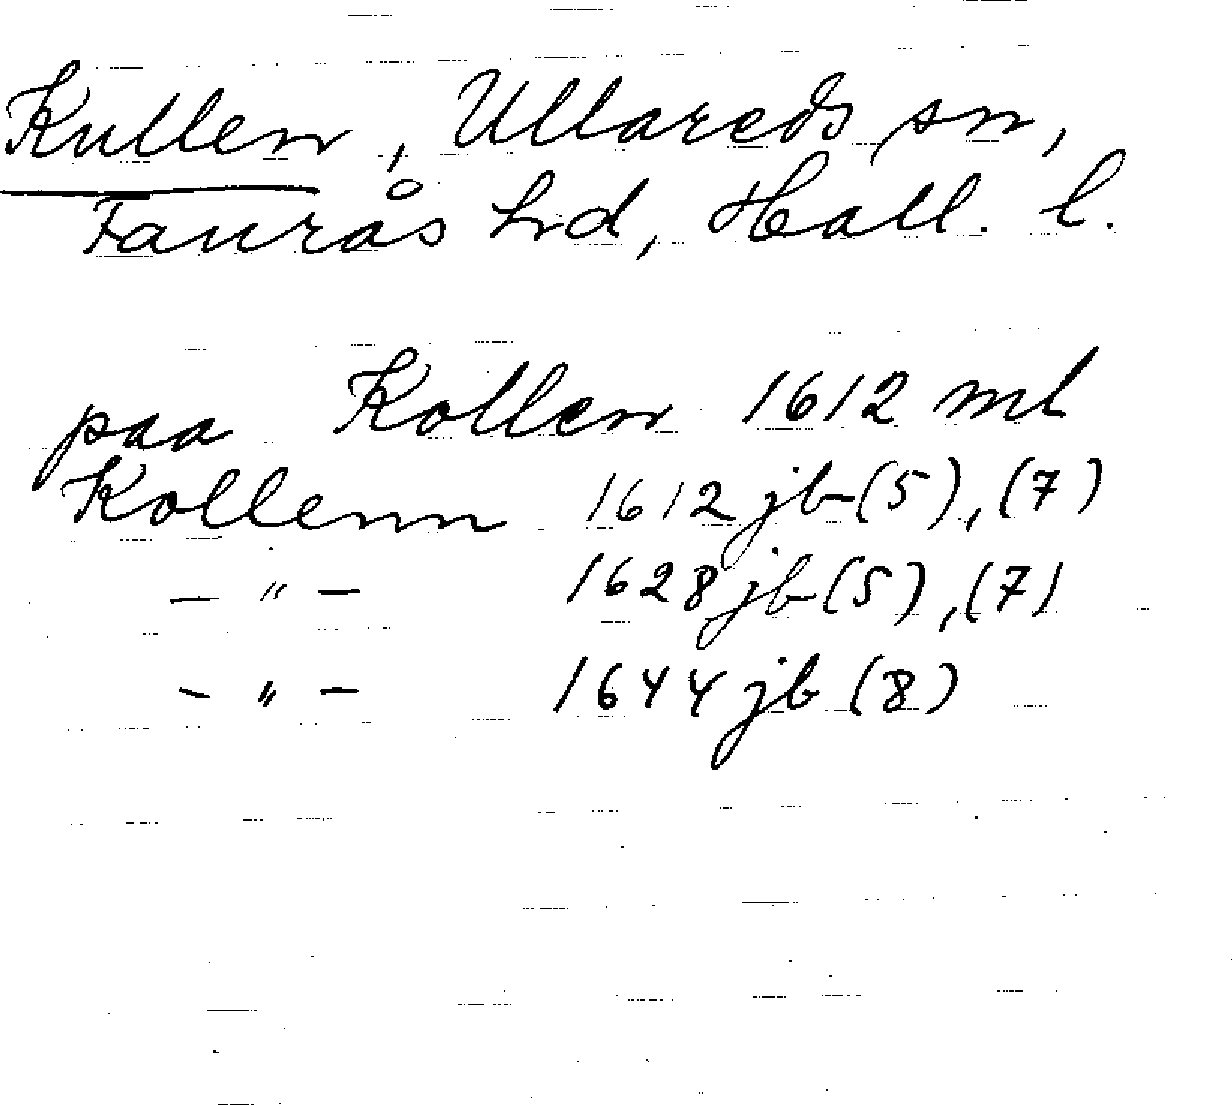 Kullen, Ullareds sn,
Faurås hrd, Hall. l.
paa Kollen 1612 ml
Kollenn 1612 jb (5), (7)
— " — 1628 jb (5), (7)
— " — 1644 jb (8)